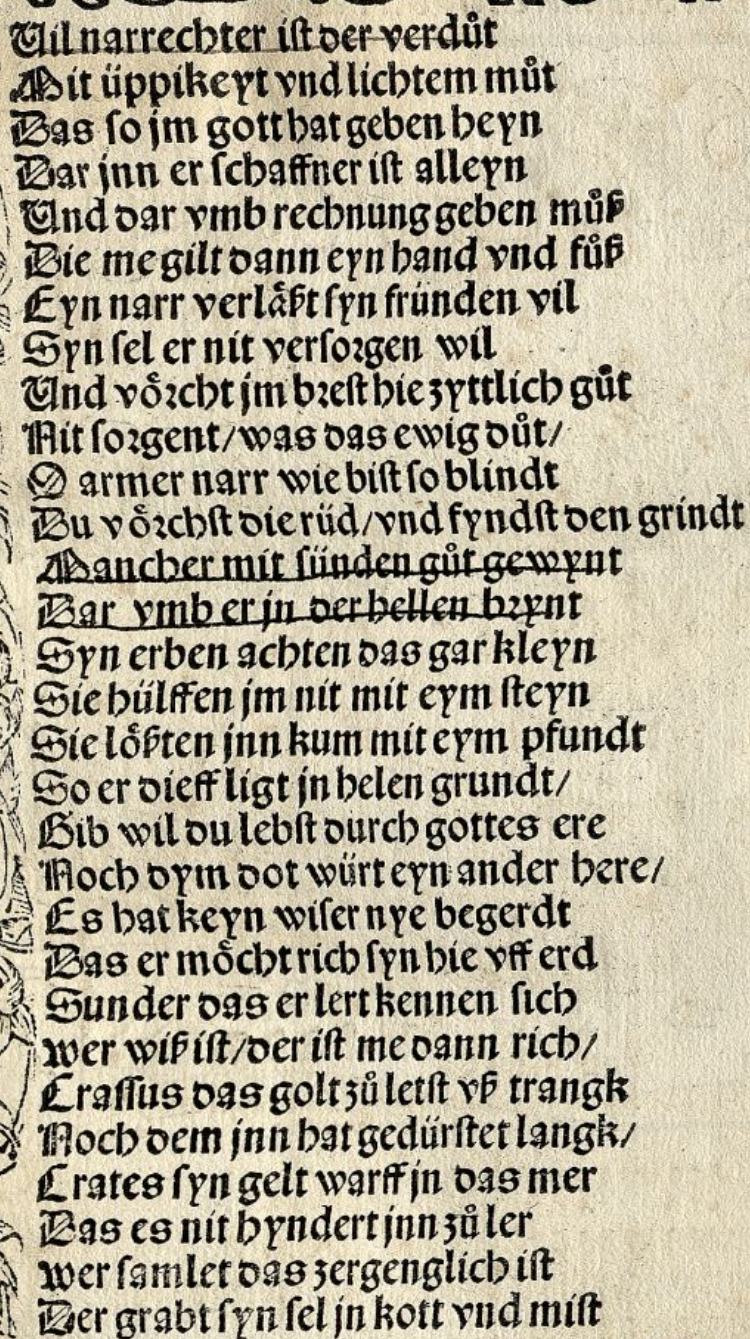 Vil narrechter ist der verdůt
Mit üppikeyt vnd lichtem můt
Das so jm gott hat geben heyn
Dar jnn er schaffner ist alleyn
Und dar vmb rechnung geben můß
Die me gilt dann eyn hand vnd fůß
Eyn narr verläßt syn fründen vil
Syn sel er nit versorgen wil
Und vörcht jm brest hie zyttlich gůt
Nit sorgent/was das ewig důt/
O armer narr wie bist so blindt
Du vörchst die rüd/vnd fyndst den grindt
Mancher mit sünden gůt gewynt
Dar vmb er jn der hellen brynt
Syn erben achten das gar kleyn
Sie hülffen jm nit mit eym steyn
Sie lößten jnn kum mit eym pfundt
So er dieff ligt jn helen grundt/
Gib wil du lebst durch gottes ere
Noch dym dot würt eyn ander here/
Es hat keyn wiser nye begerdt
Das er möcht rich syn hie vff erd
Sunder das er lert kennen sich
wer wiß ist/der ist me dann rich/
Crassus das golt zů letst vß trangk
Noch dem jnn hat gedürstet langk/
Crates syn gelt warff jn das mer
Das es nit hyndert jnn zů ler
wer samlet das zergenglich ist
Der grabt syn sel jn kott vnd mist